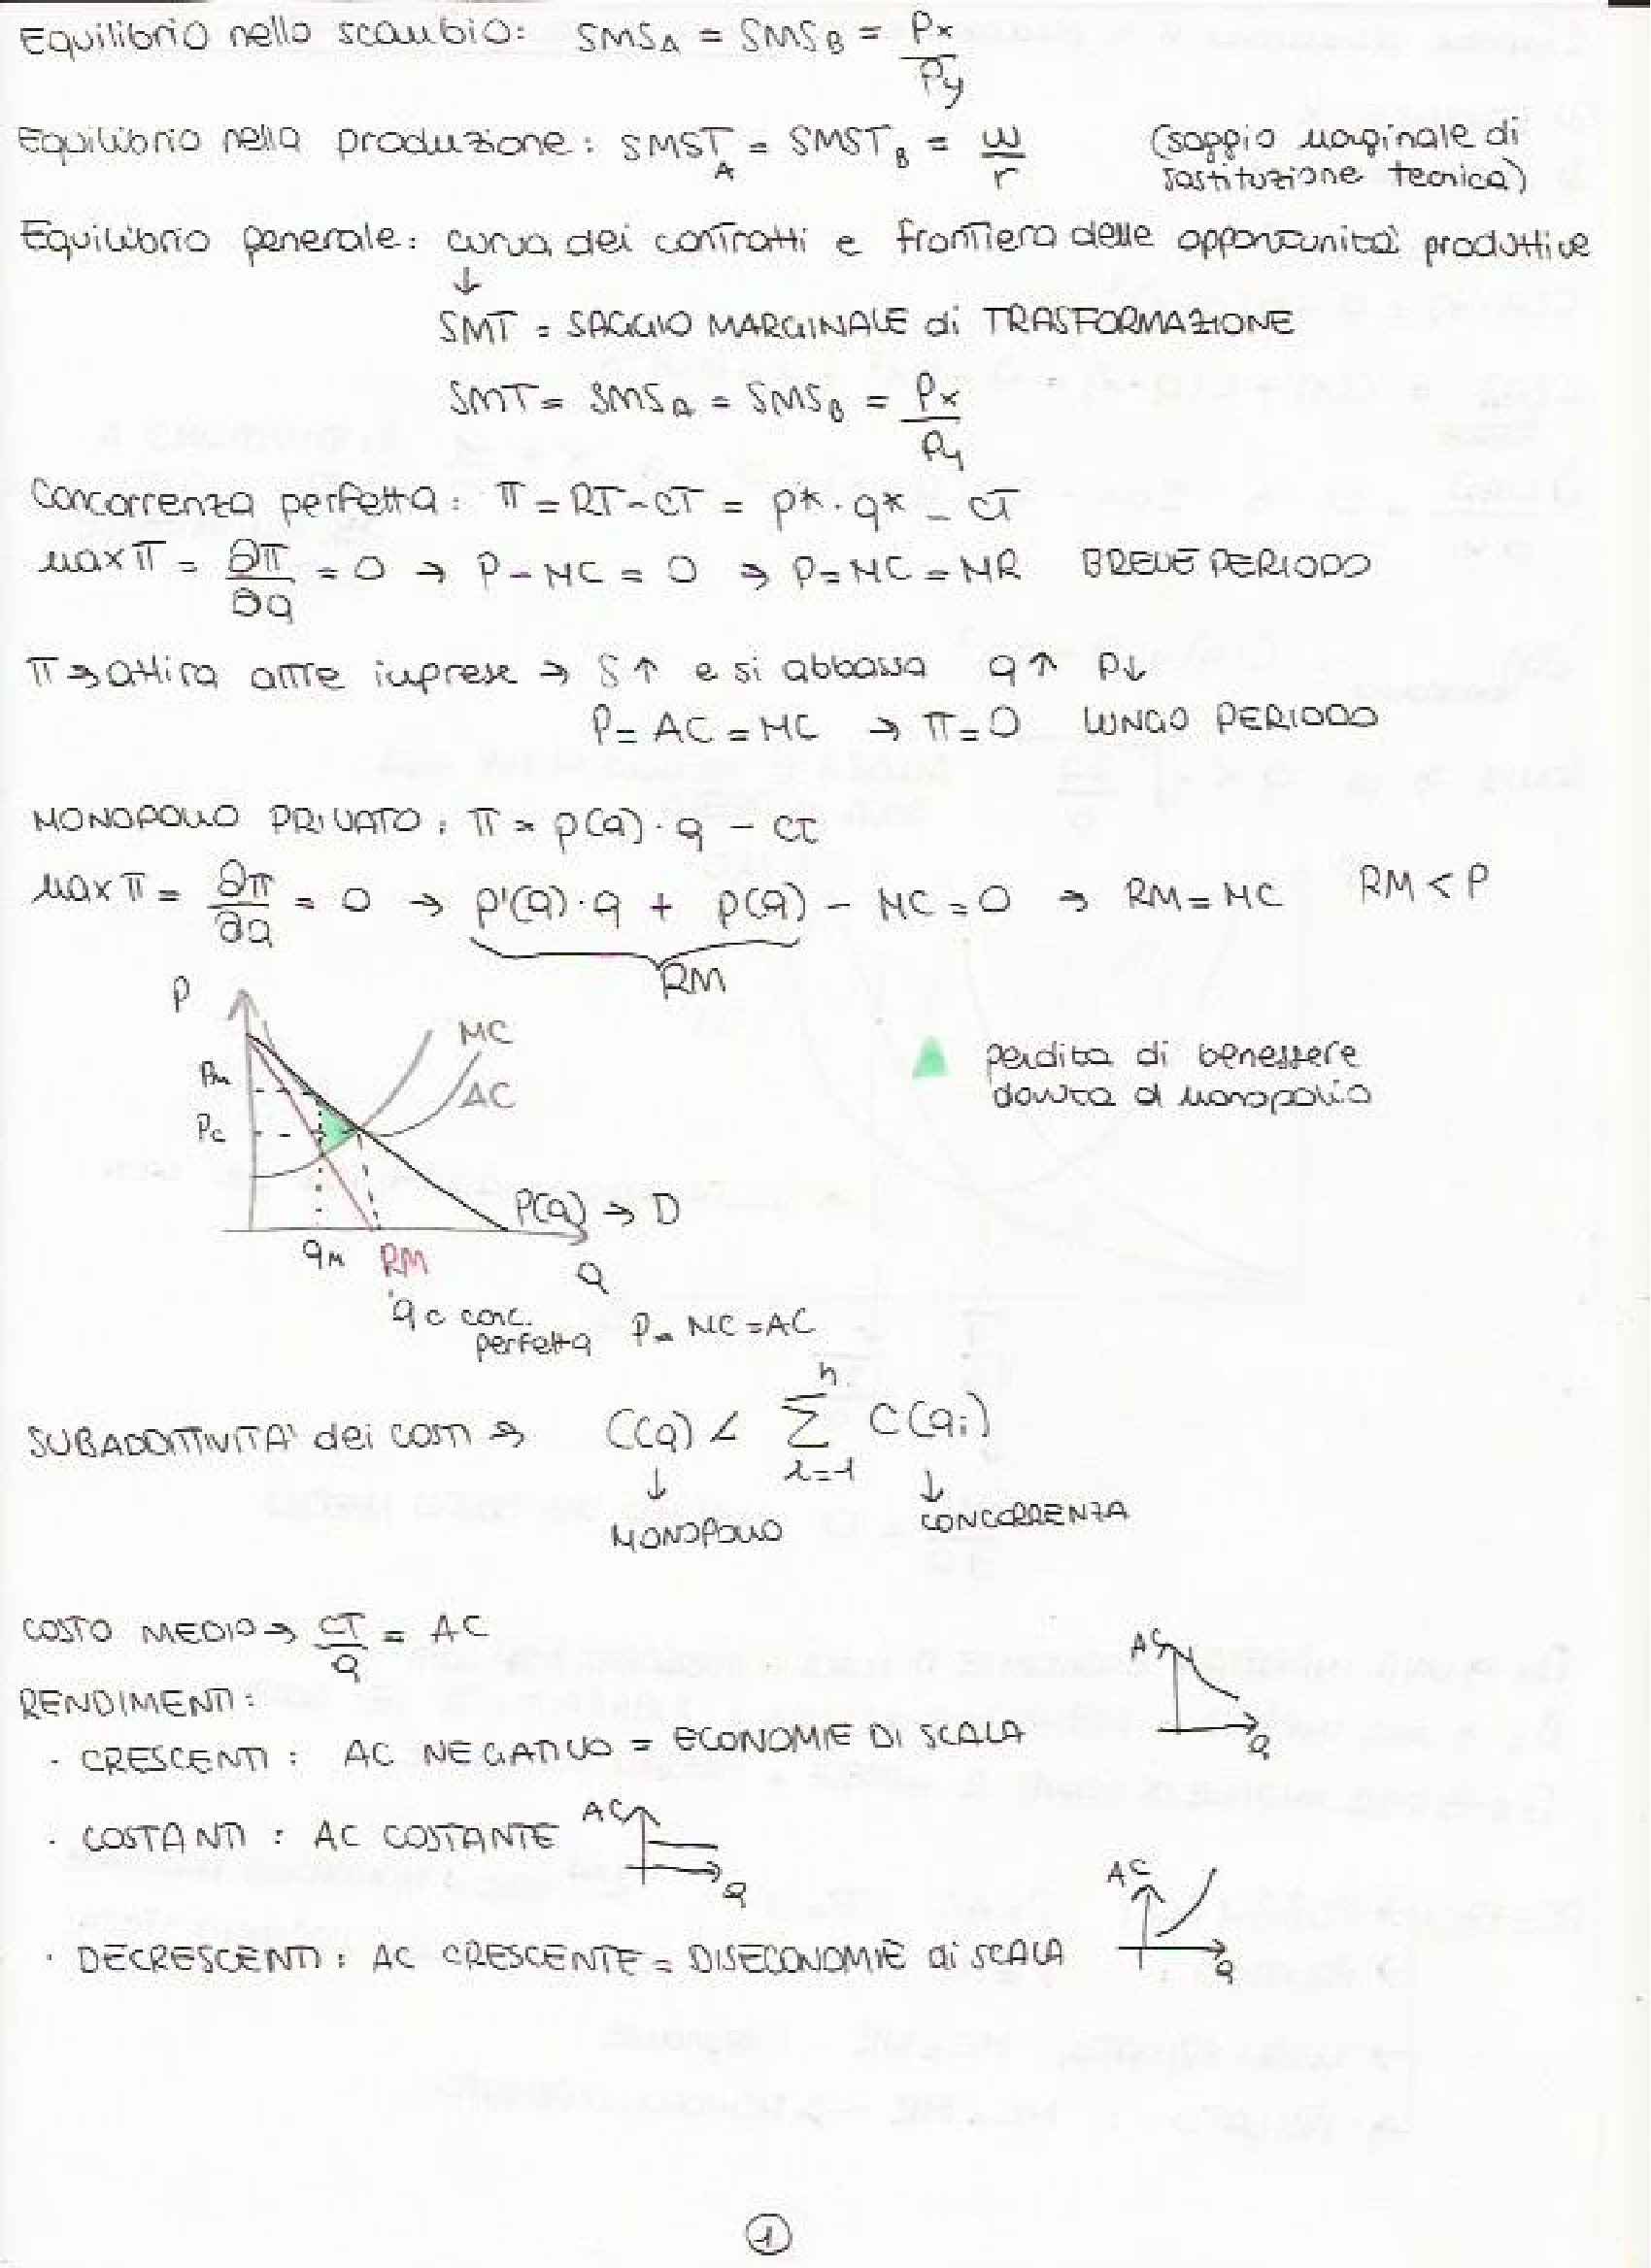 Equilibrio nello scambio: SMS_A = SMS_B = Px/Py
Equilibrio nella produzione: SMST_A = SMST_B = w/r (saggio marginale di
sostituzione tecnica)
Equilibrio generale: curva dei contratti e frontiera delle opportunità produttive
↓
SMT = SAGGIO MARGINALE di TRASFORMAZIONE
SMT = SMS_A = SMS_B = Px/Py
Concorrenza perfetta: π = RT - CT = p* · q* - CT
max π = ∂π/∂q = 0 → P - MC = 0 → P = MC = MR BREVE PERIODO
π → attira altre imprese → S↑ e si abbassa q↑ P↓
P = AC = MC → π = 0 LUNGO PERIODO
MONOPOLIO PRIVATO: π = p(q) · q - CT
max π = ∂π/∂q = 0 → p'(q) · q + p(q) - MC = 0 → RM = MC RM < P
RM
P
MC
AC
Pm
Pc
perdita di benessere
dovuta al monopolio
P(q) → D
qM RM
Q
qc conc.
perfetta P = MC = AC
SUBADDITTIVITA' dei costi → C(q) < n ∑ i=1 C(qi)
↓ ↓
MONOPOLIO CONCORRENZA
COSTO MEDIO → CT/q = AC
RENDIMENTI:
AC
Q
· CRESCENTI: AC NEGATIVO = ECONOMIE DI SCALA
· COSTANTI: AC COSTANTE
AC
Q
· DECRESCENTI: AC CRESCENTE = DISECONOMIE di SCALA
AC
Q
1